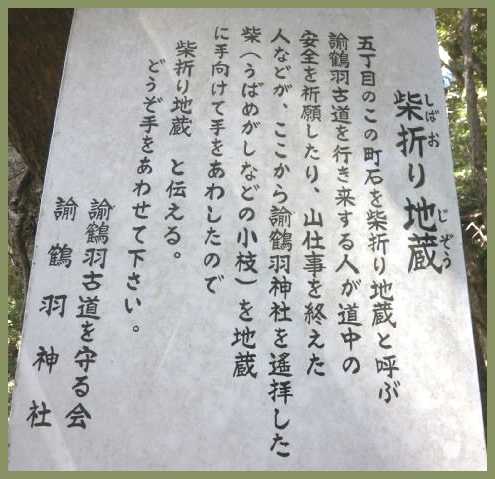 柴折り地蔵
しばお
じぞう
五丁目のこの町石を柴折り地蔵と呼ぶ
諭鶴羽古道を行き来する人が道中の
安全を祈願したり、山仕事を終えた
人などが、ここから諭鶴羽神社を遥拝した
柴(うばめがしなどの小枝)を地蔵
に手向けて手をあわしたので
柴折り地蔵 と伝える。
どうぞ手をあわせて下さい。
諭鶴羽古道を守る会
諭鶴羽神社